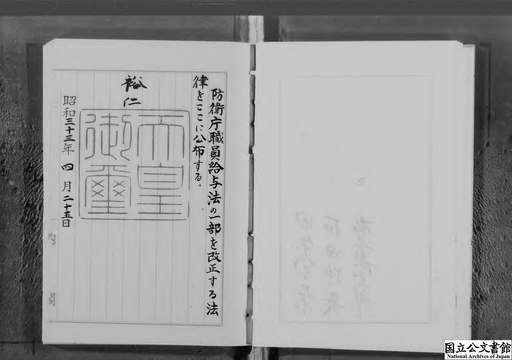 防衛庁職員給与法の一部を改正する法
律をここに公布する。
裕仁
天皇
御璽
昭和三十三年四月二十五日
国立公文書館
National Archives of Japan